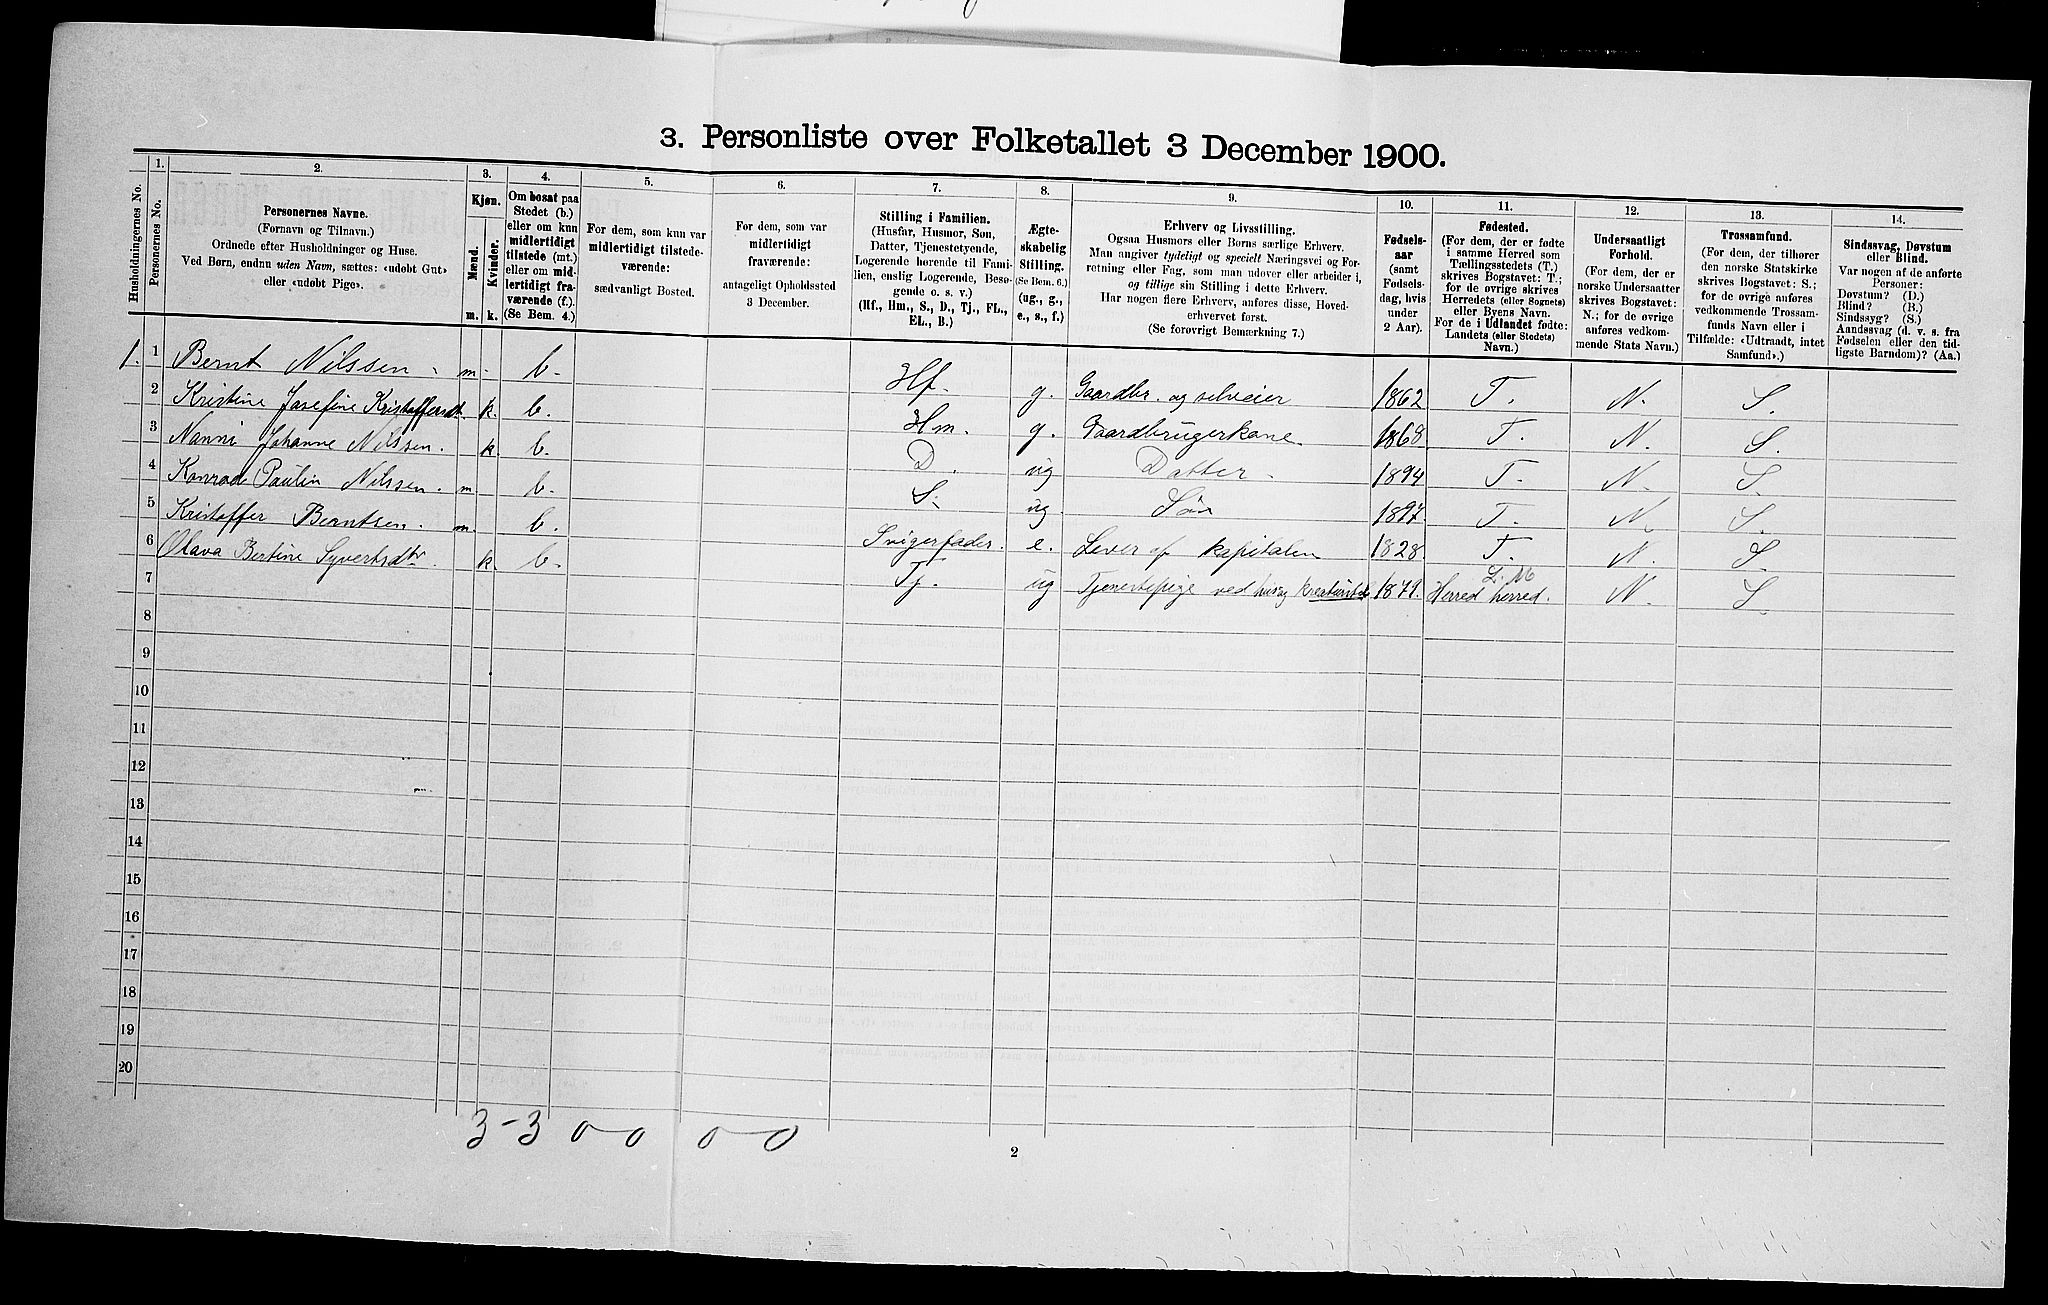 3. Personliste over Folketallet 3 December 1900.
Husholdningernes No.
1.
Personernes No.
2.
Personernes Navne.
(Fornavn og Tilnavn.)
Ordnede efter Husholdninger og Huse.
Ved Børn, endnu uden Navn, sættes: «udøbt Gut»
eller «udøbt Pige».
3.
Kjøn.
Mænd.
Kvinder.
m. k.
4.
Om bosat paa
Stedet (b.)
eller om kun
midlertidigt
tilstede (mt.)
eller om mid-
lertidigt fra-
værende (f.)
(Se Bem. 4.)
5.
For dem, som kun var
midlertidigt tilstede-
værende:
sædvanligt Bosted.
6.
For dem, som var
midlertidigt
fraværende:
antageligt Opholdssted
3 December.
7.
Stilling i Familien.
(Husfar, Husmor, Søn,
Datter, Tjenestetyende,
Logerende hørende til Fami-
lien, enslig Logerende, Besø-
gende o. s. v.)
(Hf., Hm., S., D., Tj., FL.,
EL., B.)
8.
Ægte-
skabelig
Stilling.
(Se Bem. 6.)
(ug., g.,
e., s., f.)
9.
Erhverv og Livsstilling.
Ogsaa Husmors eller Børns særlige Erhverv.
Man angiver tydeligt og specielt Næringsvei og For-
retning eller Fag, som man udøver eller arbeider i,
og tillige sin Stilling i dette Erhverv.
Har nogen flere Erhverv, anføres disse, Hoved-
erhvervet først.
(Se forøvrigt Bemærkning 7.)
10.
Fødsels-
aar
(samt
Fødsels-
dag, hvis
under
2 Aar).
11.
Fødested.
(For dem, der er fødte
i samme Herred som
Tællingsstedets (T.)
skrives Bogstavet: T.;
for de øvrige skrives
Herredets (eller Sognets)
eller Byens Navn.
For de i Udlandet fødte:
Landets (eller Stedets)
Navn.)
12.
Undersaatligt
Forhold.
(For dem, der er
norske Undersaatter
skrives Bogstavet:
N.; for de øvrige
anføres vedkom-
mende Stats Navn.)
13.
Trossamfund.
(For dem, der tilhører
den norske Statskirke
skrives Bogstavet: S.;
for de øvrige anføres
vedkommende Trossam-
funds Navn eller i
Tilfælde: «Udtraadt, intet
Samfund».)
14.
Sindssvag, Døvstum
eller Blind.
Var nogen af de anførte
Personer:
Døvstum? (D.)
Blind? (B.)
Sindssyg? (S.)
Aandssvag (d. v. s. fra
Fødselen eller den tid-
ligste Barndom)? (Aa.)
1. 1 Bernt Nilssen. m. b. Hf. g. Gaardbr. og selveier 1862 T. N. S.
2 Kristine Josefine Kristoffersdt. k. b. Hm. g. Gaardbrugerkone 1868 T. N. S.
3 Nanni Johanne Nilssen. k. b. D. ug Datter. 1894 T. N. S.
4 Konrad Paulin Nilssen. m b. S. ug. Søn 1897. T. N. S.
5 Kristoffer Berntsen. m. b. Svigerfader. e. Lever af kapitalen 1828. T. N. S.
6 Olava Bertine Syvertsdtr. k. b. Tj. ug Tjenestepige ved husog kreaturstel 1879. Herred herred. N. S.
7
8
9
10
11
12
13
14
15
16
17
18
19
20
3-3 0-0 0-0
2